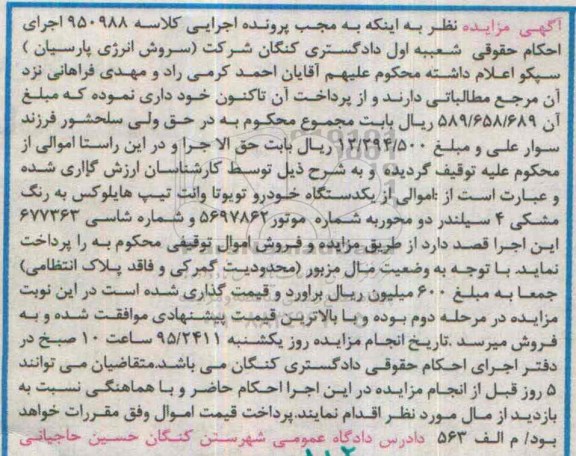 آگهی مزایده نظر به اینکه به مجب پرونده اجرایی کلاسه ۹۵۰۹۸۸ اجرای
احکام حقوقی شعببه اول دادگستری کنگان شرکت (سروش انرژی پارسیان )
سپکو اعلام داشته محکوم علیهم آقایان احمد کرمی راد و مهدی فراهانی نزد
آن مرجع مطالباتی دارند و از پرداخت آن تاکنون خود داری نموده که مبلغ
آن ۵۸۹/۶۵۸/۶۸۹ ریال بابت مجموع محکوم به در حق ولی سلحشور فرزند
سوار علی و مبلغ ۱۲/۳۹۴/۵۰۰ ریال بابت حق الا جرا و در این راستا اموالی از
محکوم علیه توقیف گردیده و به شرح ذیل توسط کارشناسان ارزش گزاری شده
و عبارت است از :اموالی از یکدستگاه خودرو تویوتا وانت تیپ هایلوکس به رنگ
مشکی ۴ سیلندر دو محوربه شماره موتور۵۶۹۷۸۶۲ و شماره شاسی ۶۷۷۳۶۳
این اجرا قصد دارد از طریق مزایده و فروش اموال توقیفی محکوم به را پرداخت
نماید. با توجه به وضعیت مال مزبور (محدودیت گمرکی و فاقد پلاک انتظامی)
جمعا به مبلغ ۶۰۰ میلیون ریال براورد و قیمت گذاری شده است در این نوبت
مزایده در مرحله دوم بوده و با بالاترین قیمت پیشنهادی موافقت شده و به
فروش میرسد .تاریخ انجام مزایده روز یکشنبه ۹۵/۲۴۱۱ ساعت ۱۰ صبح در
دفتر اجرای احکام حقوقی دادگستری کنگان می باشد.متقاضیان می توانند
۵ روز قبل از انجام مزایده در این اجرا احکام حاضر و با هماهنگی نسبت به
بازدید از مال مورد نظر اقدام نمایند.پرداخت قیمت اموال وفق مقررات خواهد
بود/ م الف ۵۶۳ دادرس دادگاه عمومی شهرستن کنگان حسین حاجیانی